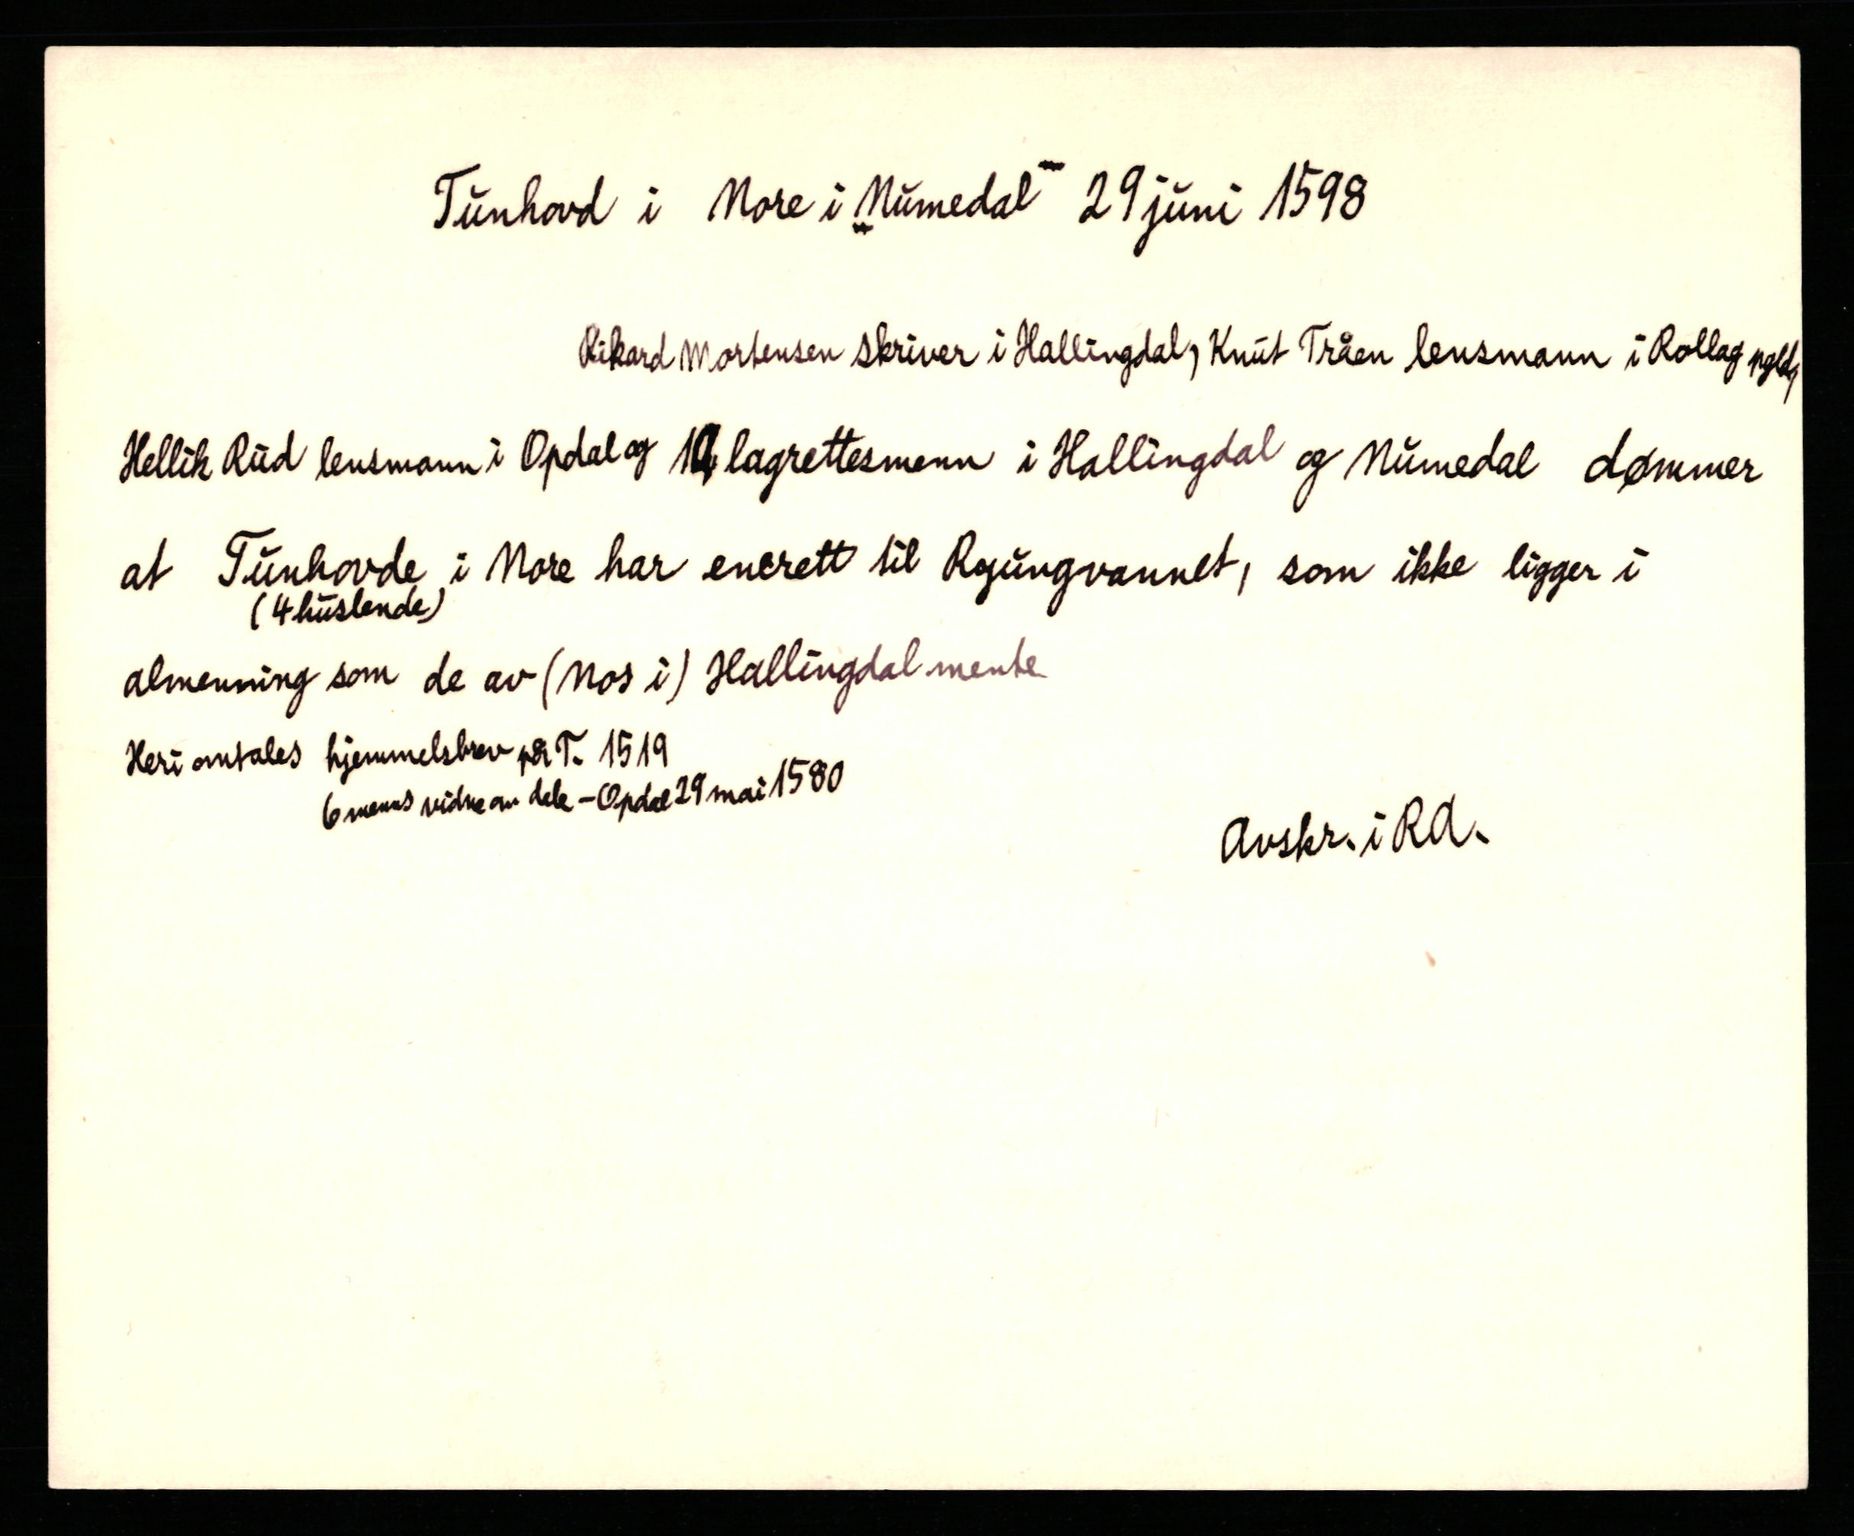 Tunhovd i Nore i „Numedal“ 29 juni 1598
Rikard Mortensen skriver i Hallingdal, Knut Tråen lensmann i Rollag pgld,
Hellik Rud lensmann i Opdal og lagrettesmenn i Hallingdal og Numedal dømmer
at Tunhovde i Nore har enerett til Rgungvannet, som ikke ligger i
(4 huslende)
almenning som de av (Nos i) Hallingdal mente
Heri omtales hjemmelsbrev på T. 1519
6 menns vidne om dele – Opdal 29 mai 1580
Avskr. i RA.